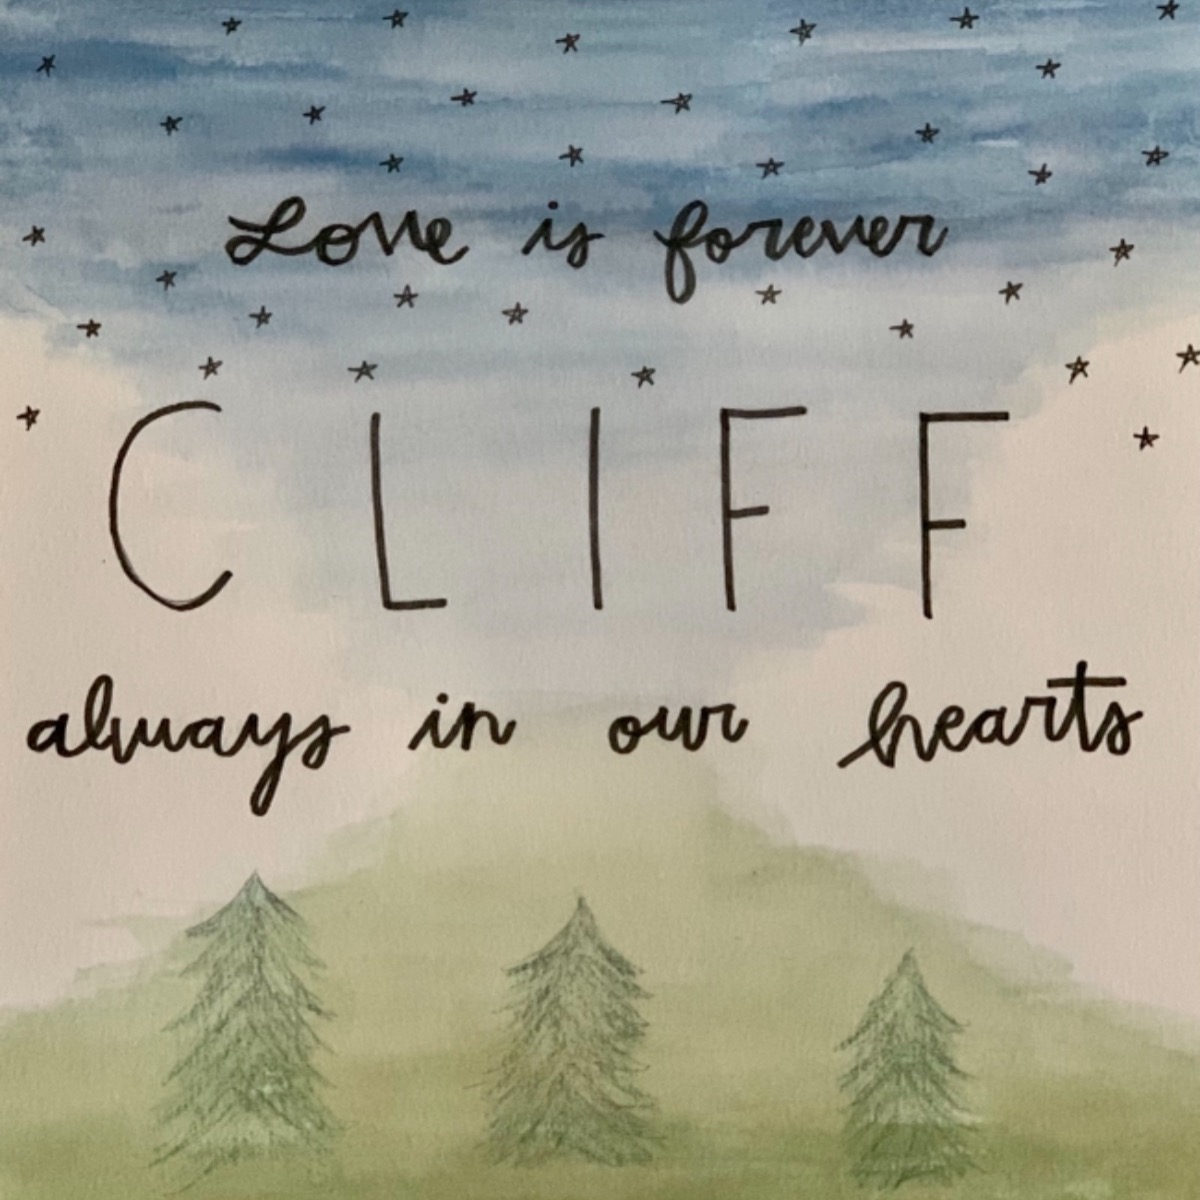 Love is forever
CLIFF
always in our hearts